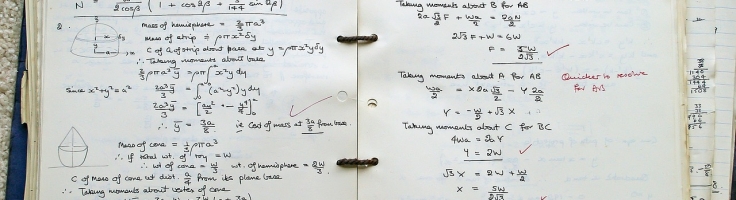 N = Wa / 2cosβ ( 1 + cos2β + 3/144 sin2β )
2.
Mass of hemisphere = 2/3 ρπa³
Mass of strip = ρπx²δy
C of G of strip about base at y = ρπx²yδy
∴ Taking moments about base
2/3 ρπa³ȳ = ρπ∫x²y dy
Since x²+y²=a²
2a³ȳ/3 = ∫(a²-y²)y dy
2a³ȳ/3 = [a²y²/2 - y⁴/4]
∴ ȳ = 3a/8 ie C of mass at 3a/8 from base
Mass of cone = 1/3 ρπa³
∴ If total wt. of toy = W
∴ wt of cone = W/3 wt. of hemisphere = 2W/3
C of Mass of cone at dist. a/4 from its plane base
∴ Taking moments about vertex of cone
Taking moments about B for AB
2a√3/2 F + Wa/2 = 2aN/2
2√3 F + W = 6W
F = 5W/2√3
Taking moments about A for AB
Quicker to resolve
for AB
Wa/2 = X2a√3/2 - Y 2a/2
Y = -W/2 + √3 X
Taking moments about C for BC
4Wa = 2aY
Y = 2W
√3 X = 2W + W/2
X = 5W/2√3